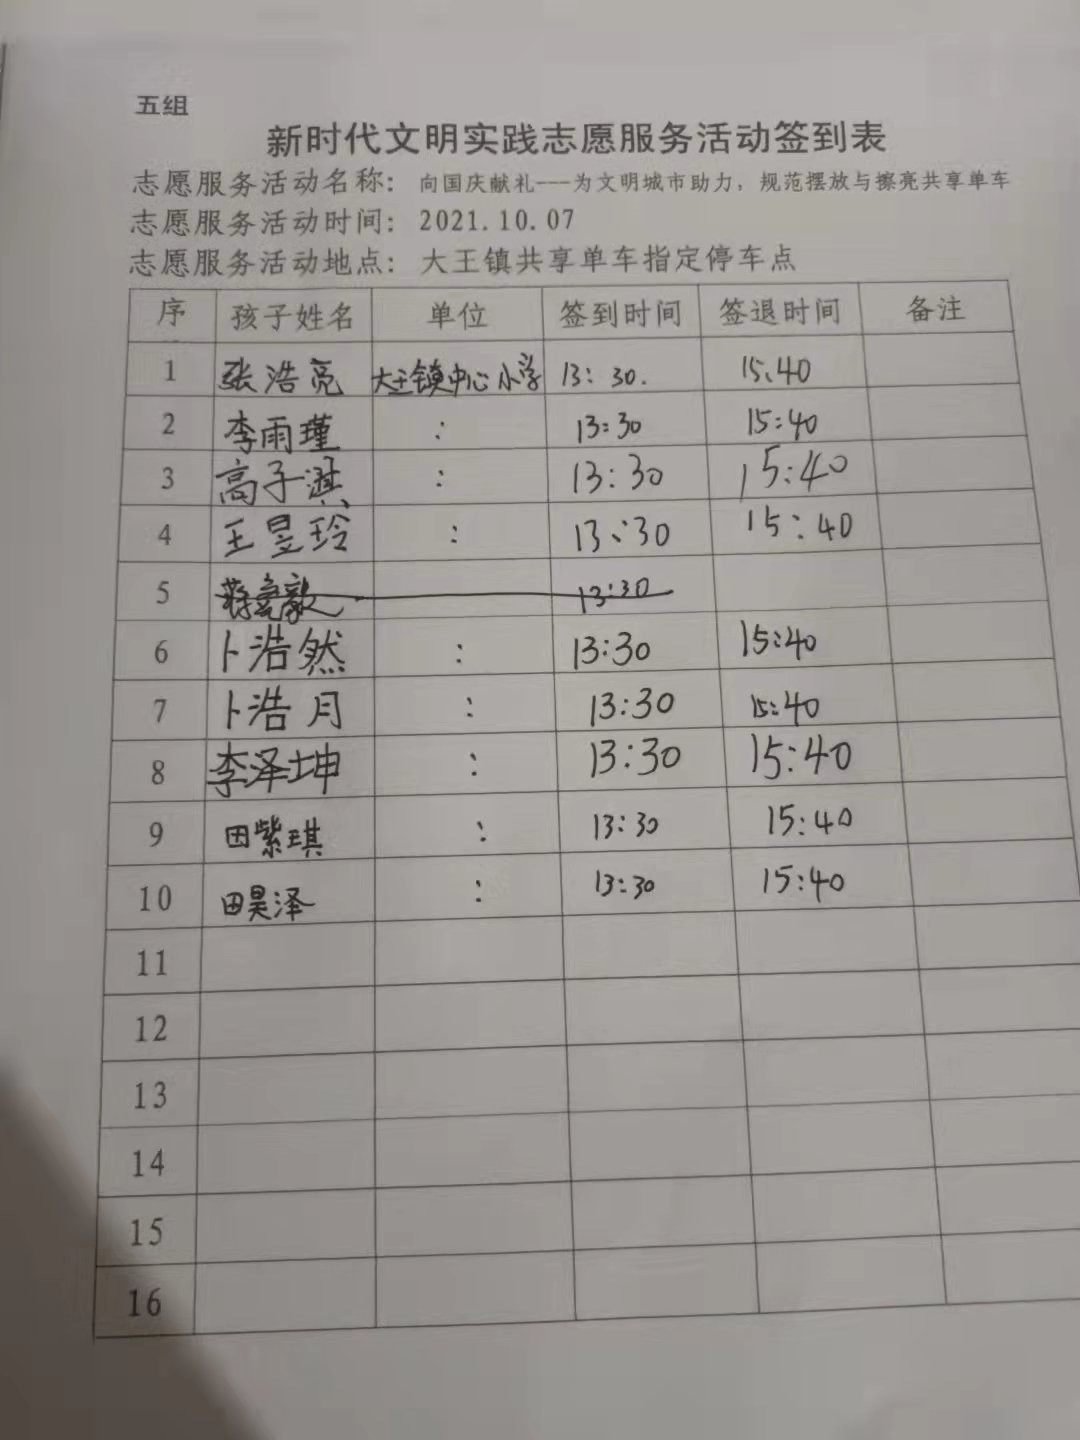 五组
新时代文明实践志愿服务活动签到表
志愿服务活动名称: 向国庆献礼---为文明城市助力, 规范摆放与擦亮共享单车
志愿服务活动时间: 2021.10.07
志愿服务活动地点: 大王镇共享单车指定停车点
序 孩子姓名 单位 签到时间 签退时间 备注
1 张浩亮 大王镇中心小学 13:30. 15:40
2 李雨瑾 : 13:30 15:40
3 高子淇 : 13:30 15:40
4 王昱玲 : 13:30 15:40
5 13:30
6 卜浩然 : 13:30 15:40
7 卜浩月 : 13:30 15:40
8 李泽坤 : 13:30 15:40
9 田紫琪 : 13:30 15:40
10 田昊泽 : 13:30 15:40
11
12
13
14
15
16